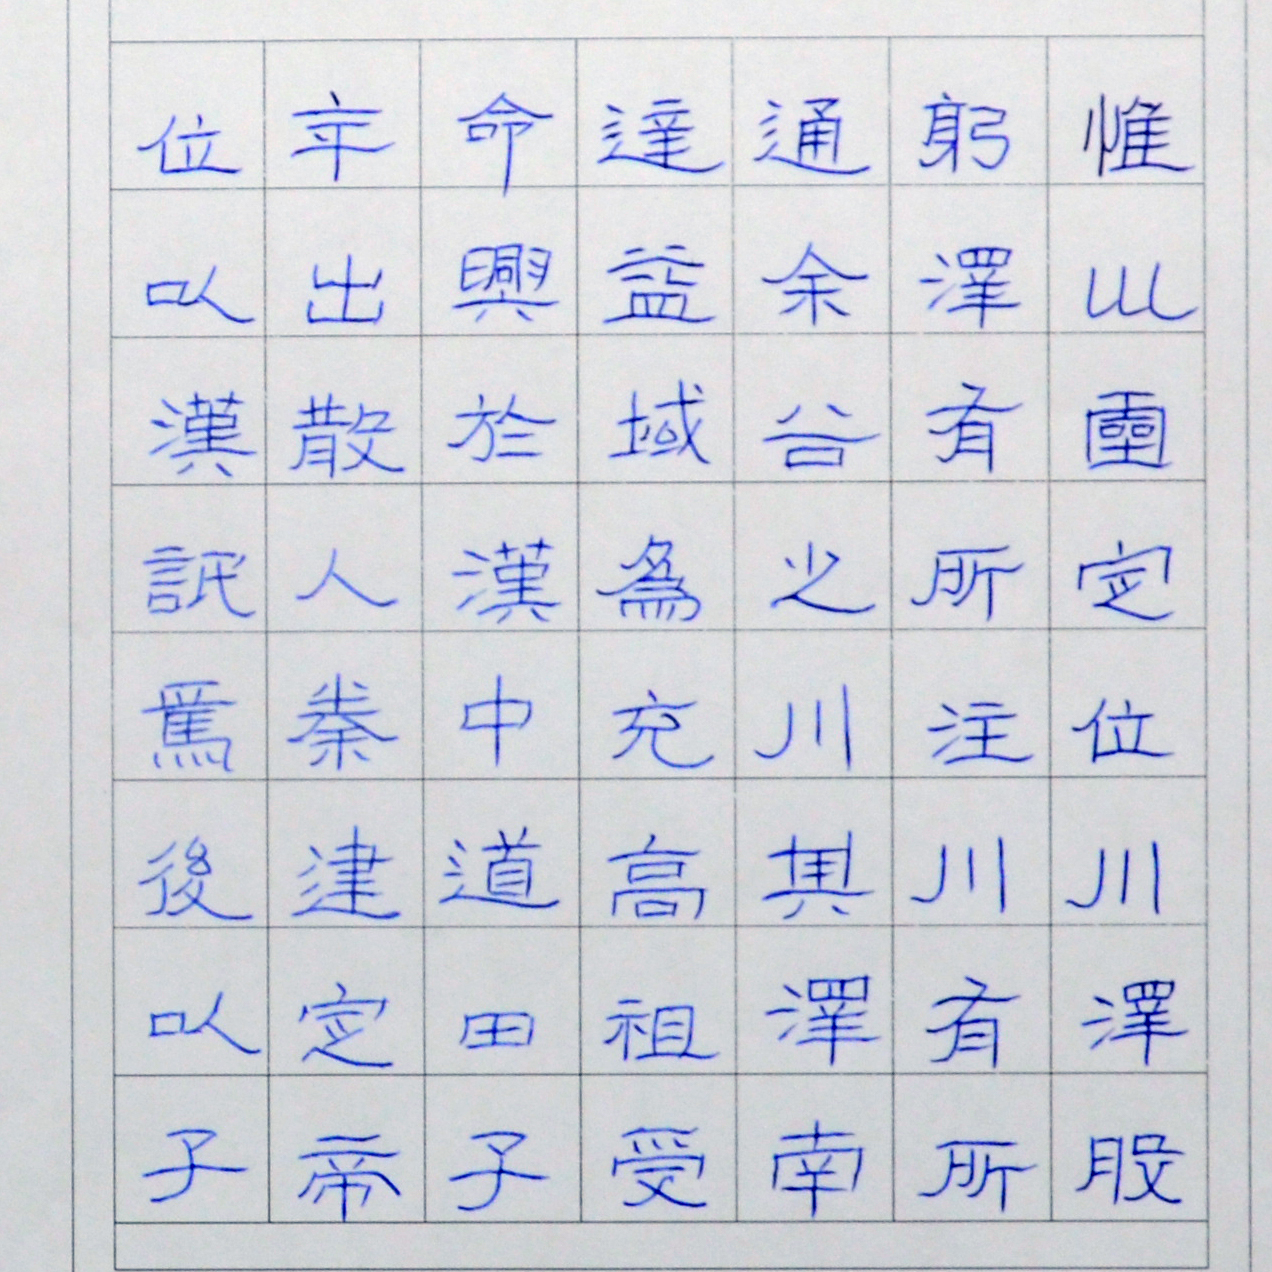 惟巛靈定位川澤股
躬澤有所注川有所
通余谷之川其澤南
達益域爲充高祖受
命興於漢中道田子
午出散人秦建定帝
位以漢詆焉後以子